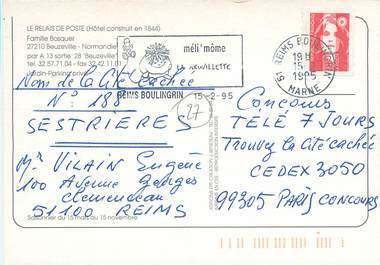 LE RELAIS DE POSTE (Hôtel construit en 1844)
Famille Bosquer
27210 Beuzeville - Normandie
par A 13 sortie 28 'Beuzeville'
Tél. 32.57.71.04 - Fax 32.42.11.01
Jardin-Parking privé
méli'môme
LA NEUVILLETTE
REIMS BOULINGRIN 15-2-95
51 REIMS BOULINGRIN
19 H
15
1995
MARNE
Nom de la Cité cachée
N° 188
SESTRIERES
27
Mr VILAIN Eugène
100 Avenue Georges
Clemenceau
51100 REIMS
Saisonnier du 15 mars au 15 novembre
Concours
TELÉ 7 JOURS
Trouvez la cité cachée
CEDEX 3050
99305 PARIS CONCOURS